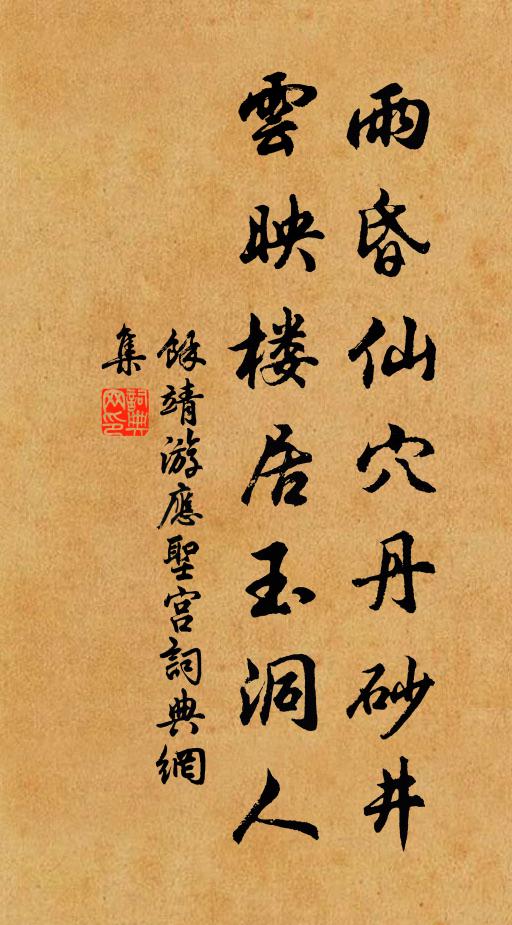 雨昏仙穴丹砂井
雲映楼居玉洞人
餘靖游應聖宮詞典網
集
詞典网印